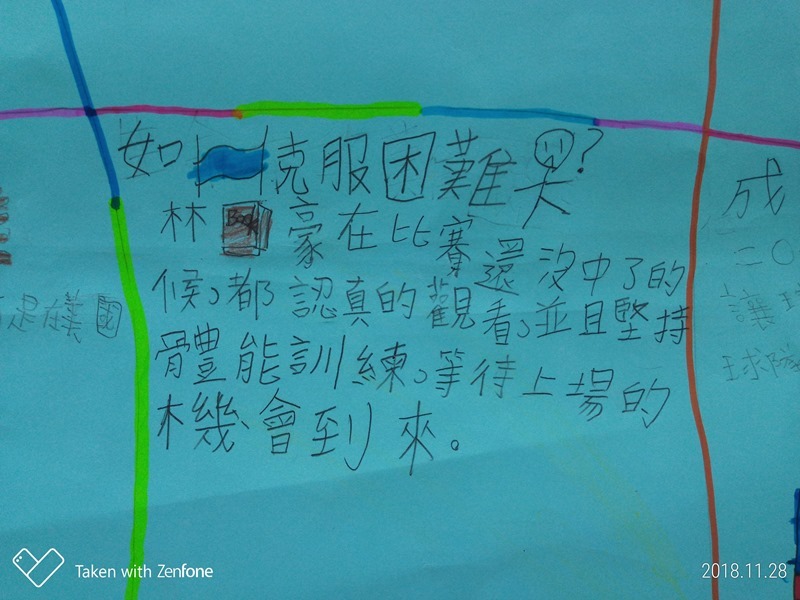 如 克服困難?
林 Book 豪在比賽還沒中了的
候,都認真的觀看,並且堅持
體能訓練,等待上場的
機會到來。
國
成
二〇
讓
球隊
Taken with Zenfone
2018.11.28